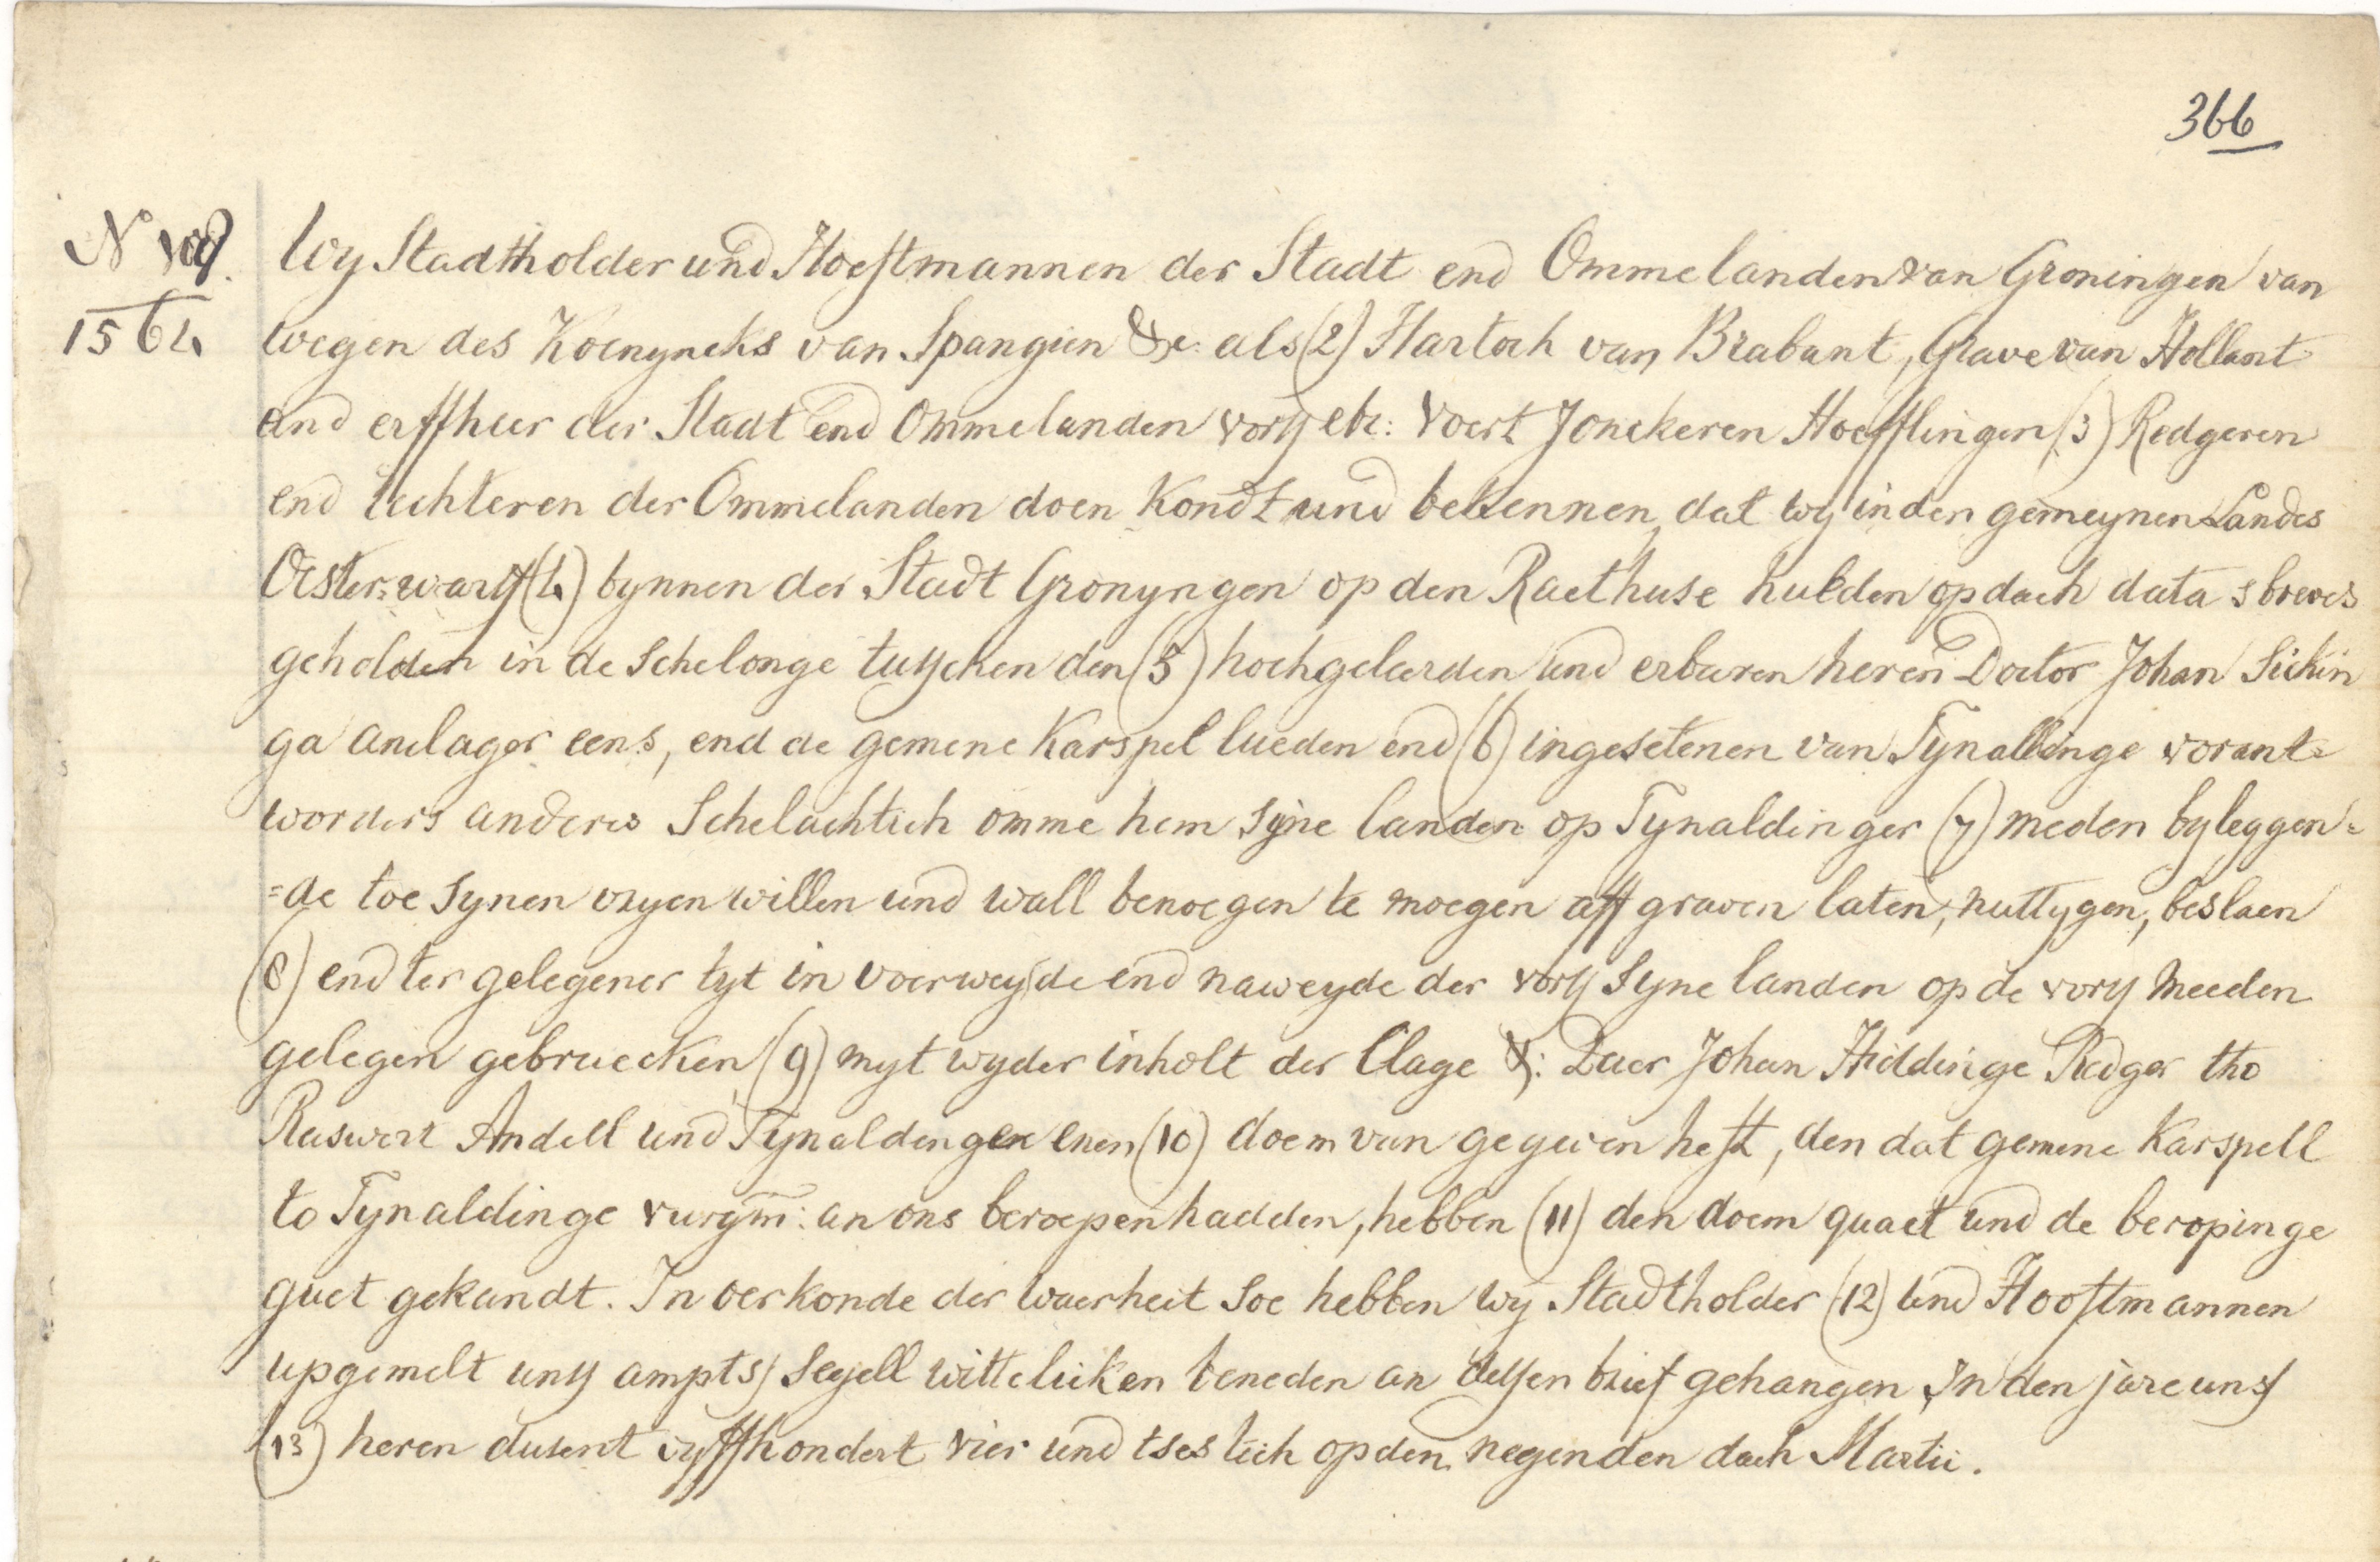 366
N
1564
Wy Stadtholder und Hoeftmannen der Stadt end Ommelanden van Groningen van
wegen des Koenyncks van Spangien &c. als (2) Hartoch van Brabant, Grave van Hollant
and erffheer der Stadt end Ommelanden vorsz etc: Voert Jonckeren Hoefflingen (3) Redgeren
end rechteren der Ommelanden doen Kondt und bekennen, dat wy in den gemeynen Landes
Oester=warff (4) bynnen der Stadt Gronyngen op den Raethuse hulden op dach data sbreves
geholden in de Schelonge tusschen den (5) hochgelerden und erbaren heren Doctor Johan Sickin
ga anclager eens, end de gemene Karspel lueden end (6) ingesetenen van Tynallinge vorant=
worders anders Schelachtich omme hem syne landen op Tynaldinger (7) meden byleggen=
=de toe synen vryen willen und wall benoegen te moegen aff graven laten, nuttygen, beslaen
(8) end ter gelegener tyt in voerweyde end naweyde der vorsz Syne landen op de vorsz Meeden
gelegen gebruecken (9) myt wyder inholt der Clage &: Daer Johan Hiddinge Redger tho
Raswert Andell und Tynaldingen enen (10) doem van gegeven heft, den dat gemene Karspell
to Tynaldinge vurgm: an ons beroepen hadden, hebben (11) den doem quaet und de beropinge
guet gekandt. In oerkonde der waerheit soe hebben wy Stadtholder (12) und Hooftmannen
upgemelt unsz ampts Segell wittelicken beneden an dessen brief gehangen, In den jare uns
(13) heren dusent vyffhondert vier und tsestich op den negenden dach Martii.